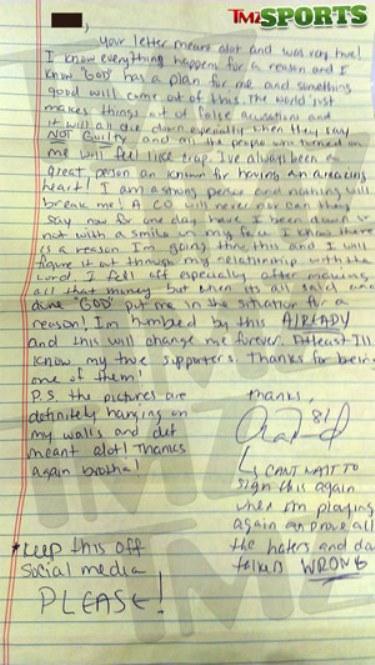 TMZ SPORTS
,
Your letter meant alot and was very true!
I know everything happens for a reason and I
know "GOD" has a plan for me and something
good will come out of this. The world just
makes things out of false accusations and
it will all die down especially when they say
NOT GUILTY and all the people who turned on
me will feel like crap. I've always been a
great person an known for having an amazing
heart! I am a strong person and nothing will
break me! A CO will never nor can they
say now for one day have I been down or
not with a smile on my face. I know there
is a reason I'm going thru this and I will
figure it out through my relationship with the
Lord. I fell off especially after making
all that money but when its all said and
done "GOD" put me in the situation for a
reason! I'm humbed by this ALREADY
and this will change me forever. Atleast I'll
know my true supporters. Thanks for being
one of them!
P.S. the pictures are
definitely hanging on
my walls and def
meant alot! Thanks
again brotha!
*Keep this off
social media
PLEASE!
Thanks,
81
CAN'T WAIT TO
sign this again
when I'm playing
again an prove all
the haters and da
talkers WRONG
TMZ